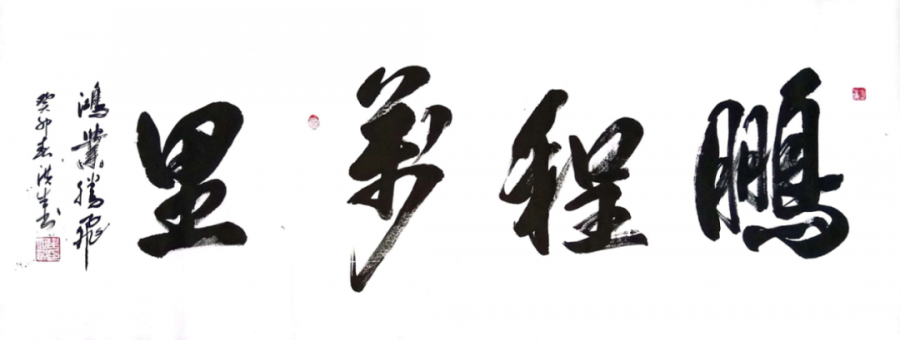 鵬程萬里
鴻業騰飛
癸卯春洪生書